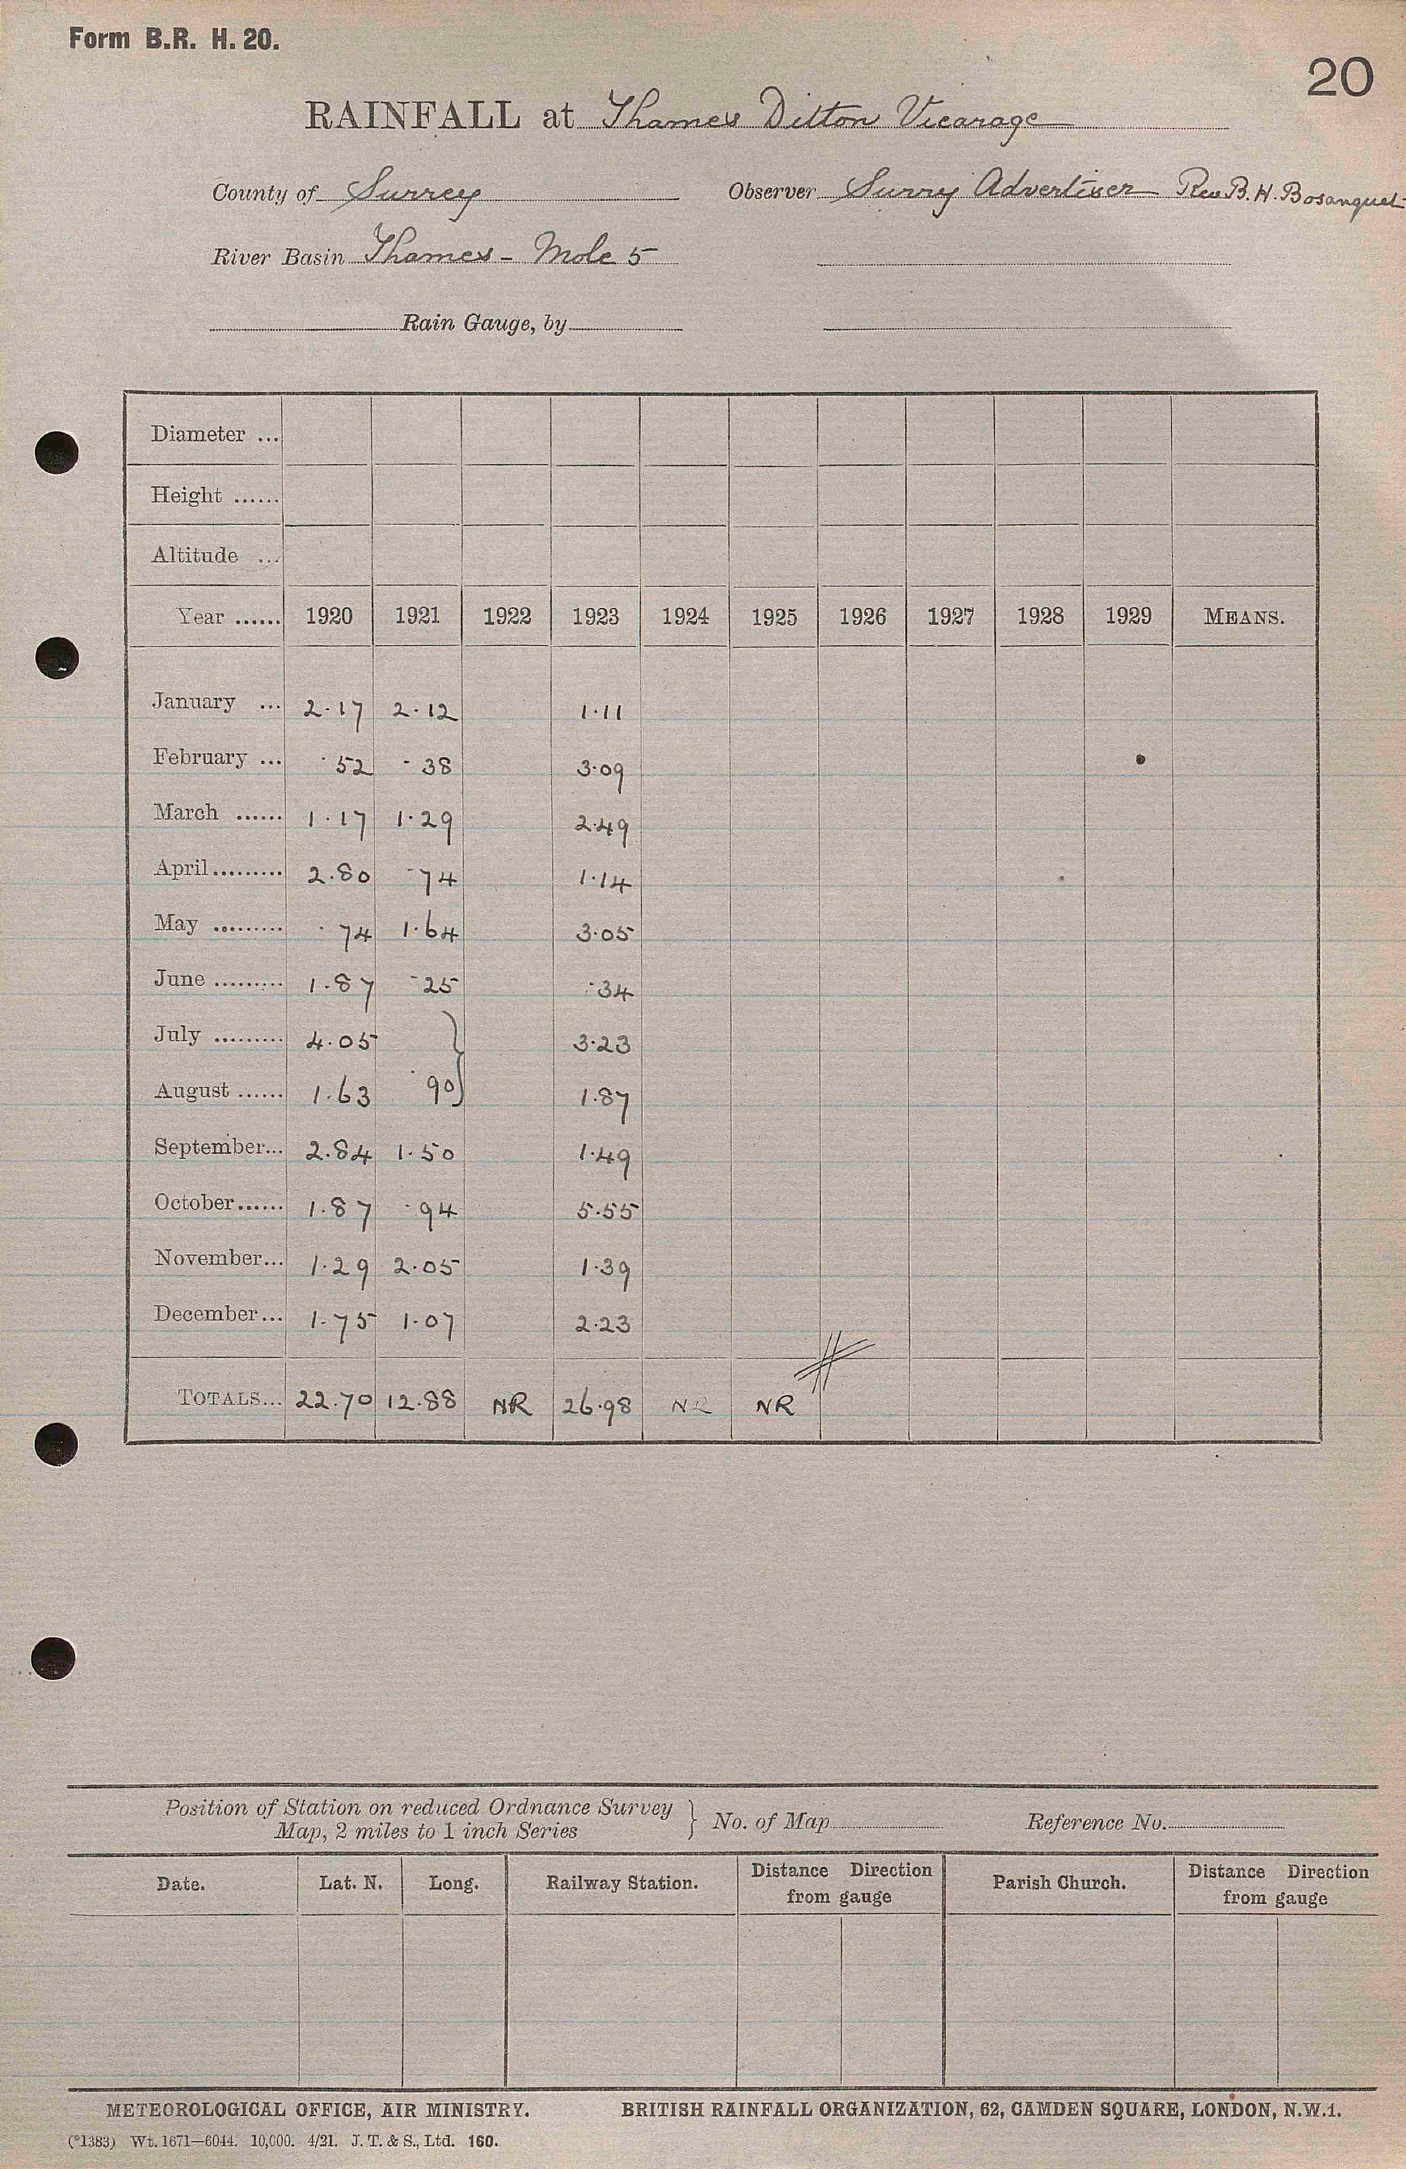 Form B.R. H. 20.
20
RAINFALL at Thames Ditton Vicarage
County of Surrey Observer Surry Advertiser Rev B. H. Bosanquet
River Basin Thames - Mole 5
Rain Gauge, by
Diameter ...
Height ......
Altitude ...
Year ...... 1920 1921 1922 1923 1924 1925 1926 1927 1928 1929 MEANS.
January ... 2.17 2.12 1.11
February ... .52 .38 3.09
March ...... 1.17 1.29 2.49
April ......... 2.80 .74 1.14
May ......... .74 1.64 3.05
June ......... 1.87 .25 .34
July ......... 4.05 } 3.23
August ...... 1.63 .90 } 1.87
September... 2.84 1.50 1.49
October...... 1.87 .94 5.55
November... 1.29 2.05 1.39
December... 1.75 1.07 2.23
TOTALS... 22.70 12.88 NR 26.98 NR NR
Position of Station on reduced Ordnance Survey
Map, 2 miles to 1 inch Series } No. of Map Reference No.
Date. Lat. N. Long. Railway Station. Distance Direction from gauge Parish Church. Distance Direction from gauge
METEOROLOGICAL OFFICE, AIR MINISTRY. BRITISH RAINFALL ORGANIZATION, 62, CAMDEN SQUARE, LONDON, N.W.1.
(*1383) Wt. 1671—6044. 10,000. 4/21. J. T. & S., Ltd. 160.